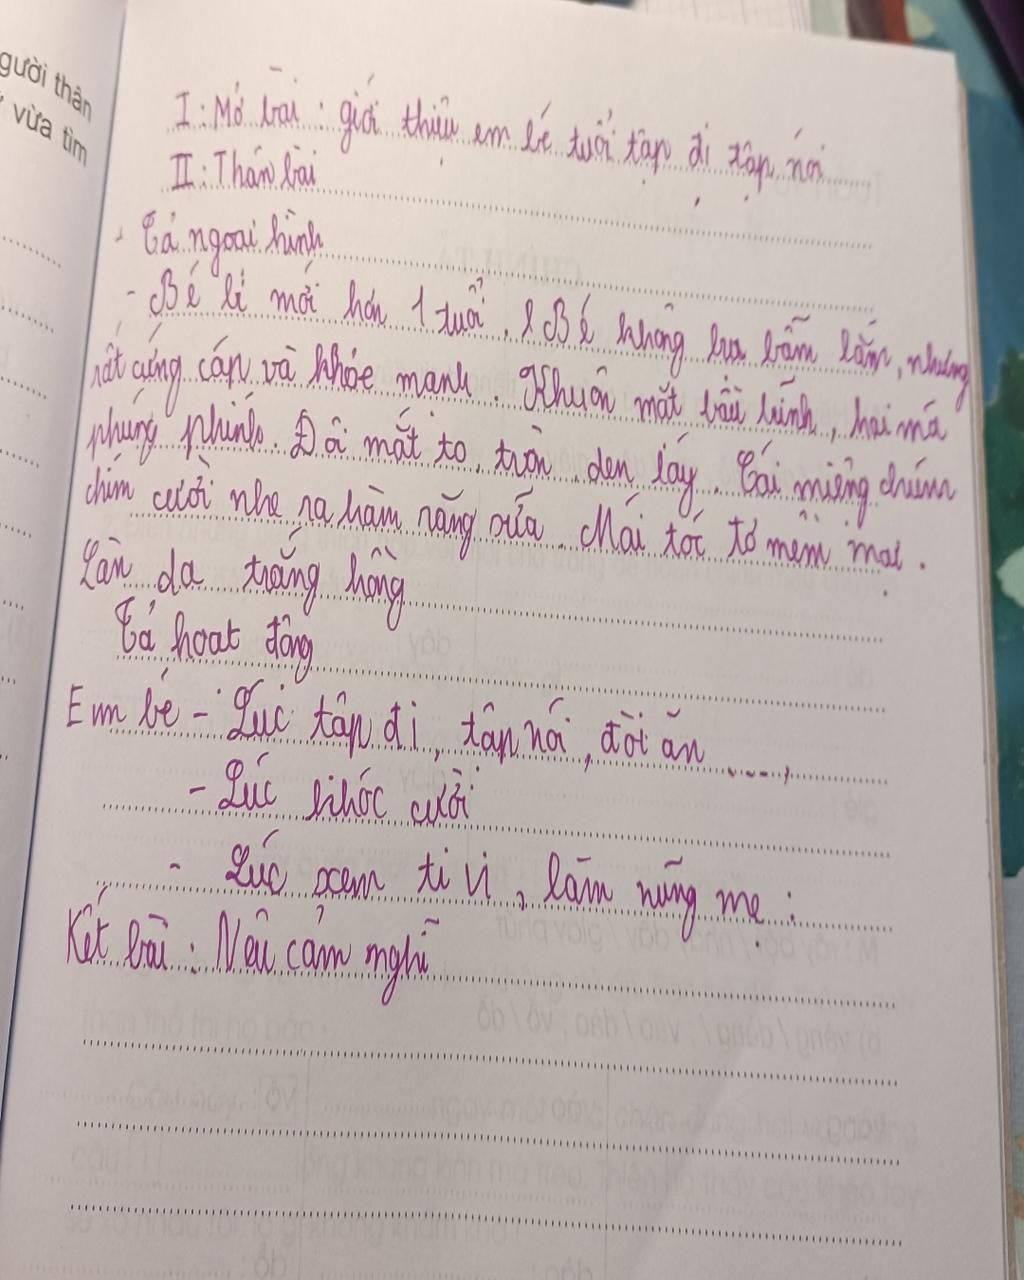 gười thân
vừa tìm
I : Mở bài : giới thiệu em bé tuổi tập đi tập nói
II : Thân bài
Tả ngoại hình
- Bé li mới hơn 1 tuổi . Bé không lưa bẫm lắm, nhưng
rất cứng cáp và khỏe mạnh . Khuôn mặt bầu bĩnh , hai má
phúng phính . Đôi mắt to , tròn đen láy . Cái miệng chúm
chím cười nhe ra hàm răng sữa . Mái tóc tơ mềm mại .
Làn da trắng hồng
Tả hoạt động
Em bé - Lúc tập đi , tập nói , đòi ăn ....,
- Lúc khóc cười
- Lúc xem ti vi , làm nũng mẹ :
Kết bài : Nêu cảm nghĩ